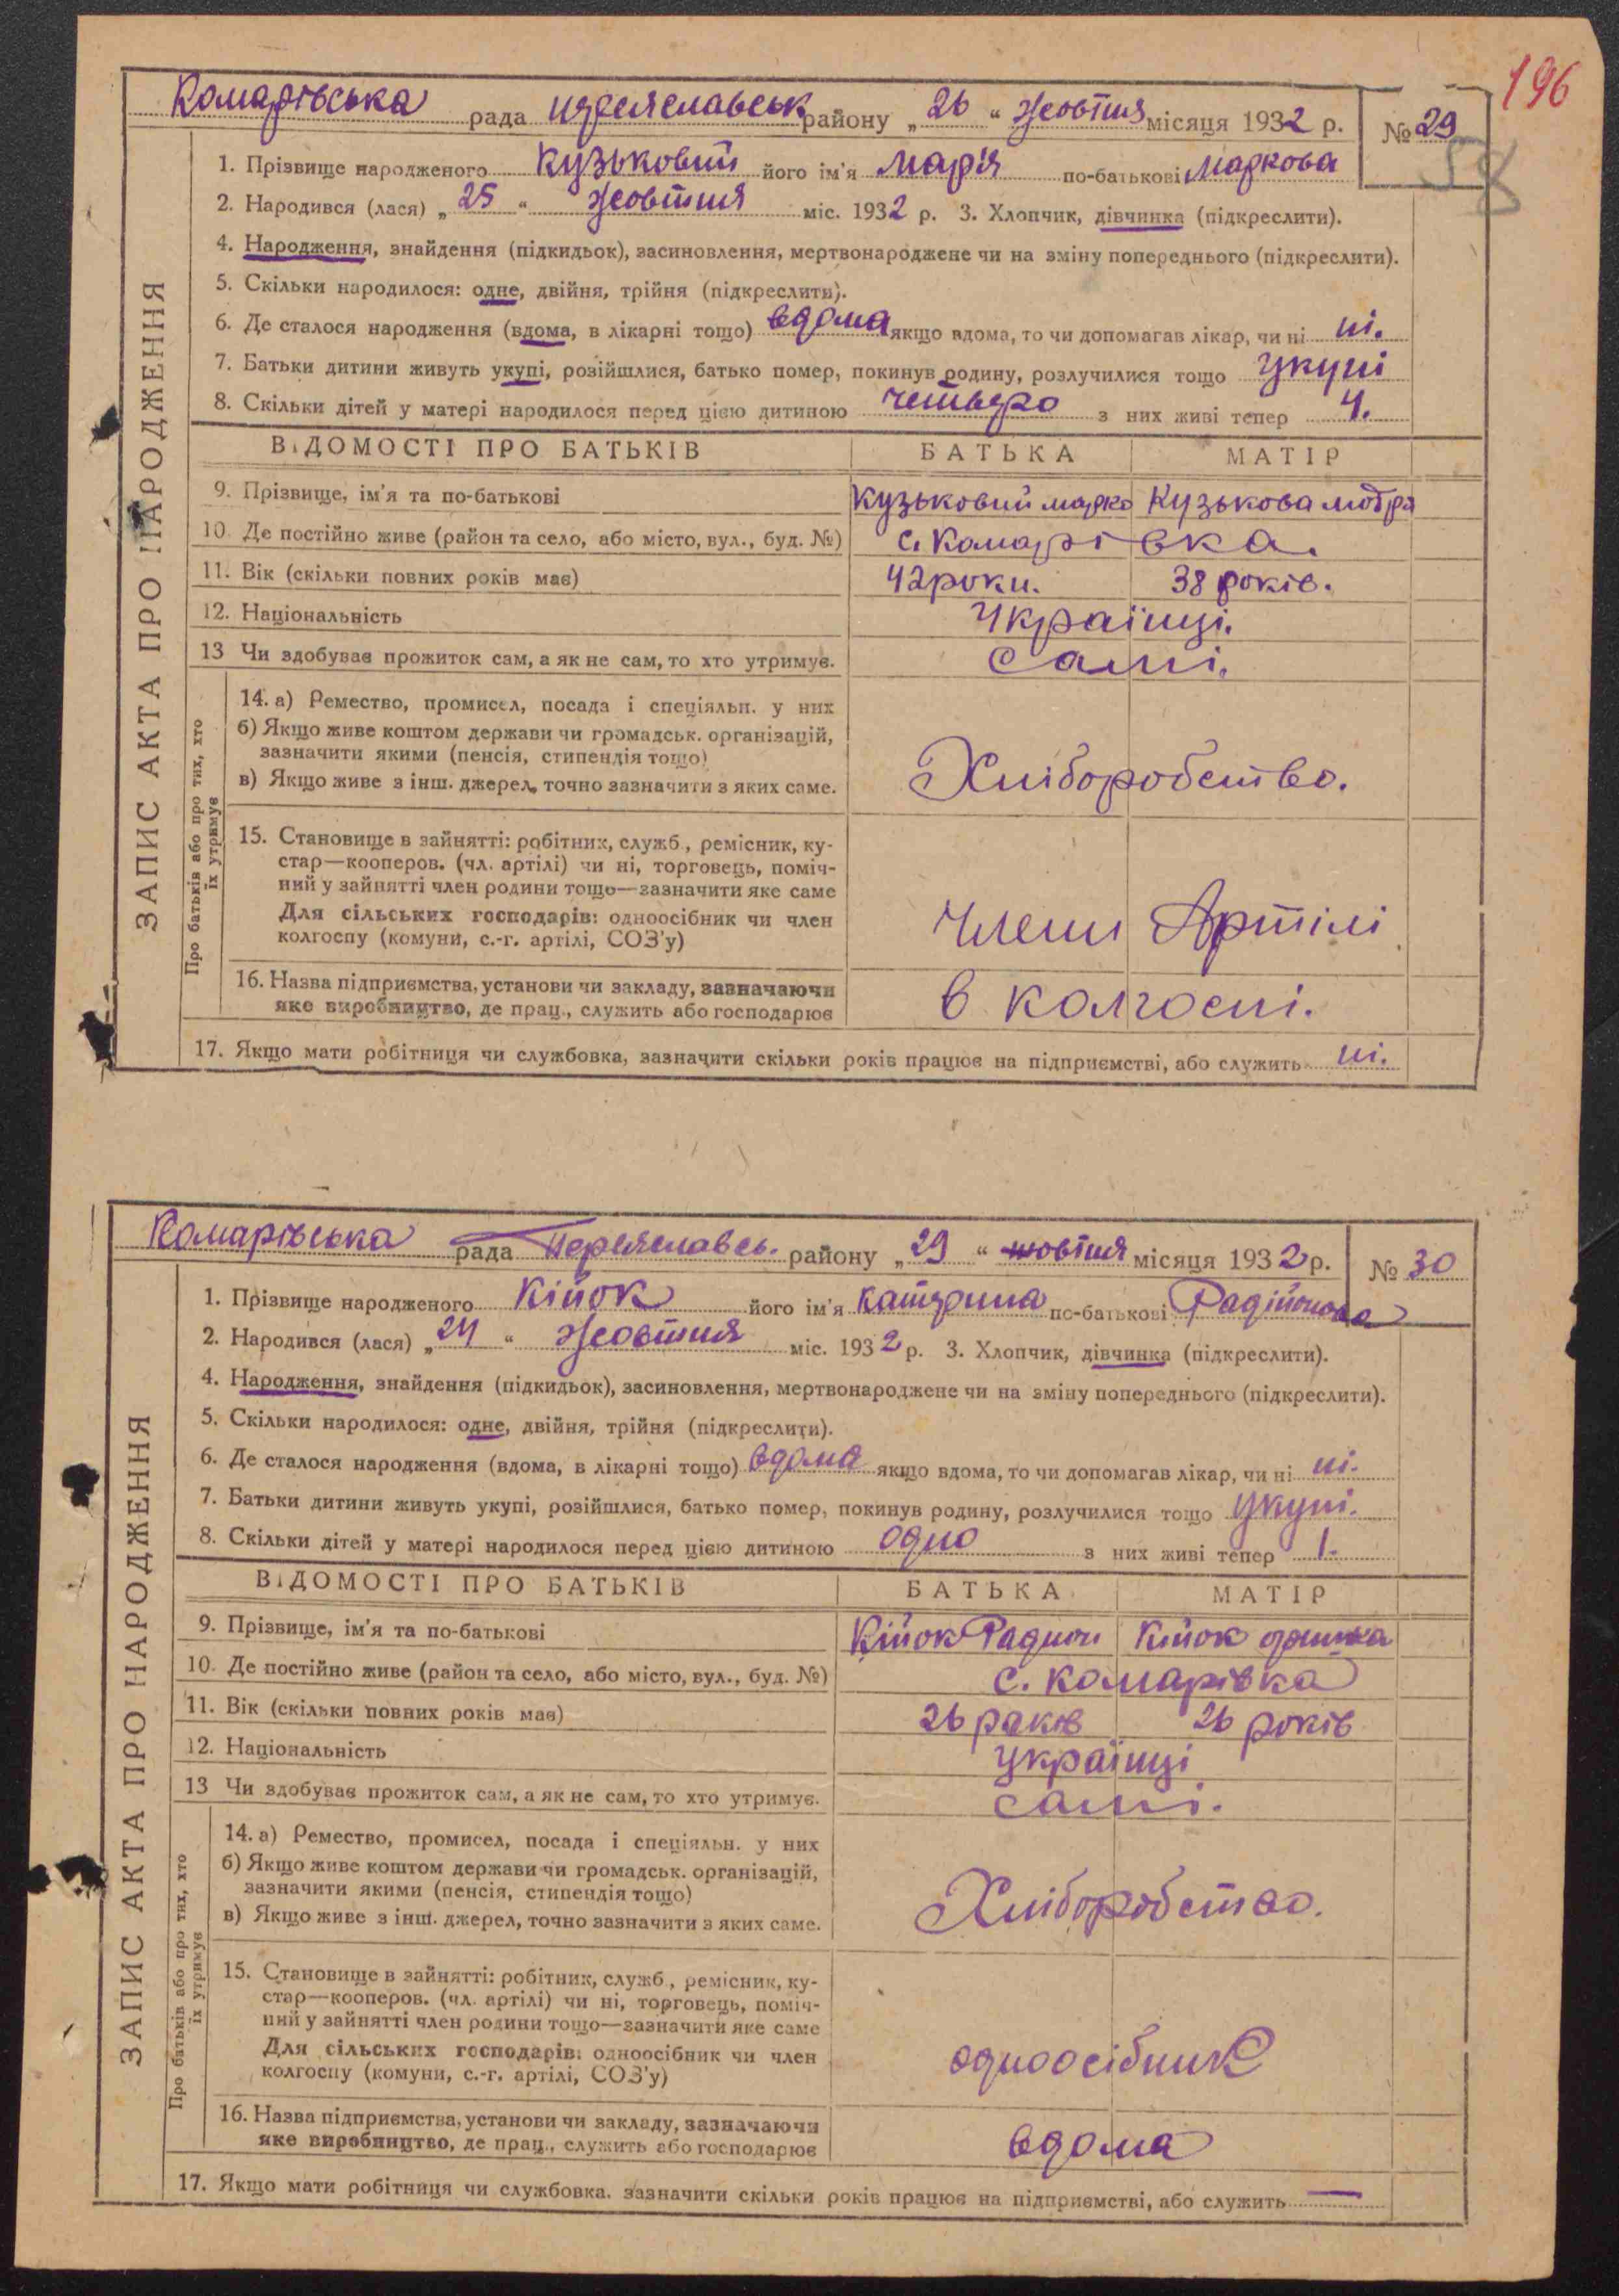 196
Комарівська рада Переяславськ району „26“ Жовтня місяця 1932 р. № 29
58
1. Прізвище народженого Кузьковий його ім'я Марія по-батькові Маркова
2. Народився (лася) „25“ Жовтня міс. 1932 р. 3. Хлопчик, дівчинка (підкреслити).
4. Народження, знайдення (підкидьок), засиновлення, мертвонароджене чи на зміну попереднього (підкреслити).
5. Скільки народилося: одне, двійня, трійня (підкреслити).
6. Де сталося народження (вдома, в лікарні тощо) вдома якщо вдома, то чи допомагав лікар, чи ні ні.
7. Батьки дитини живуть укупі, розійшлися, батько помер, покинув родину, розлучилися тощо укупі
8. Скільки дітей у матері народилося перед цією дитиною четверо з них живі тепер 4.
ЗАПИС АКТА ПРО НАРОДЖЕННЯ
ВІДОМОСТІ ПРО БАТЬКІВ БАТЬКА МАТІР
9. Прізвище, ім'я та по-батькові Кузьковий Марко Кузькова Мотря
10. Де постійно живе (район та село, або місто, вул., буд. №) с. Комарівка.
11. Вік (скільки повних років має) 42 роки. 38 років.
12. Національність Українці.
13 Чи здобуває прожиток сам, а як не сам, то хто утримує. Самі.
Про батьків або про тих, хто
їх утримує
14. а) Ремество, промисел, посада і спеціяльн. у них
б) Якщо живе коштом держави чи громадськ. організацій,
зазначити якими (пенсія, стипендія тощо)
в) Якщо живе з інш. джерел, точно зазначити з яких саме.
Хліборобство.
15. Становище в зайнятті: робітник, служб., ремісник, ку-
стар—кооперов. (чл. артілі) чи ні, торговець, поміч-
ний у зайнятті член родини тощо—зазначити яке саме
Для сільських господарів: одноосібник чи член
колгоспу (комуни, с.-г. артілі, СОЗ'у)
Члени Артілі
16. Назва підприємства, установи чи закладу, зазначаючи
яке виробництво, де прац., служить або господарює
в колгоспі.
17. Якщо мати робітниця чи службовка, зазначити скільки років працює на підприємстві, або служить ні.
Комарівська рада Переяславсь. району „29“ жовтня місяця 1932 р. № 30
1. Прізвище народженого Кійок його ім'я Катерина по-батькові Радійонова
2. Народився (лася) „24“ Жовтня міс. 1932 р. 3. Хлопчик, дівчинка (підкреслити).
4. Народження, знайдення (підкидьок), засиновлення, мертвонароджене чи на зміну попереднього (підкреслити).
5. Скільки народилося: одне, двійня, трійня (підкреслити).
6. Де сталося народження (вдома, в лікарні тощо) вдома якщо вдома, то чи допомагав лікар, чи ні ні.
7. Батьки дитини живуть укупі, розійшлися, батько помер, покинув родину, розлучилися тощо укупі.
8. Скільки дітей у матері народилося перед цією дитиною одно з них живі тепер 1.
ЗАПИС АКТА ПРО НАРОДЖЕННЯ
ВІДОМОСТІ ПРО БАТЬКІВ БАТЬКА МАТІР
9. Прізвище, ім'я та по-батькові Кійок Радион Кийок
10. Де постійно живе (район та село, або місто, вул., буд. №) с. Комарівка
11. Вік (скільки повних років має) 26 раків 26 років
12. Національність українці
13 Чи здобуває прожиток сам, а як не сам, то хто утримує. самі.
Про батьків або про тих, хто
їх утримує
14. а) Ремество, промисел, посада і спеціяльн. у них
б) Якщо живе коштом держави чи громадськ. організацій,
зазначити якими (пенсія, стипендія тощо)
в) Якщо живе з інш. джерел, точно зазначити з яких саме.
Хліборобство.
15. Становище в зайнятті: робітник, служб., ремісник, ку-
стар—кооперов. (чл. артілі) чи ні, торговець, поміч-
ний у зайнятті член родини тощо—зазначити яке саме
Для сільських господарів: одноосібник чи член
колгоспу (комуни, с.-г. артілі, СОЗ'у)
одноосібник
16. Назва підприємства, установи чи закладу, зазначаючи
яке виробництво, де прац., служить або господарює
вдома
17. Якщо мати робітниця чи службовка. зазначити скільки років працює на підприємстві, або служить —